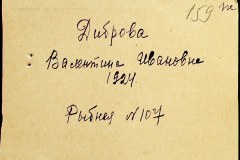 159 ж
Диброва
Валентина Ивановна
1924
Рыбная № 107